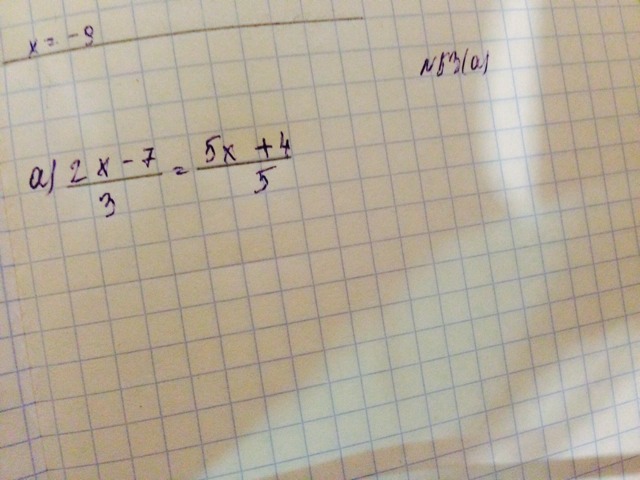 x = -9
№53(а)
а) 2x - 7 / 3 = 5x + 4 / 5